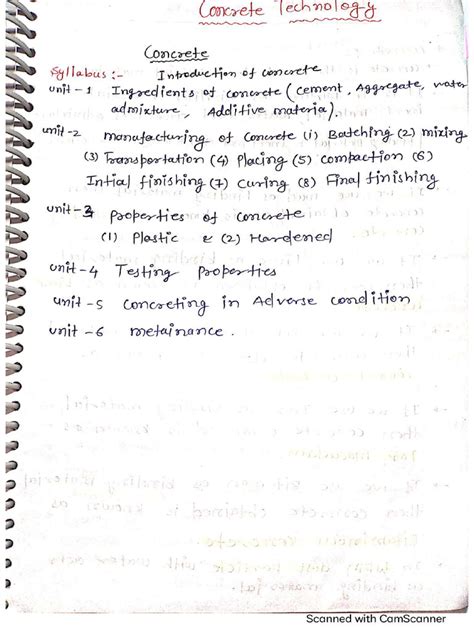 Concrete Technology
Concrete
Syllabus :- Introduction of concrete
unit - 1 Ingredients of concrete (cement, Aggregate, water
admixture, Additive material).
unit - 2 manufacturing of concrete (1) Batching (2) mixing
(3) Transportation (4) Placing (5) compaction (6)
Intial finishing (7) Curing (8) Final finishing
unit - 3 Properties of concrete
(1) Plastic & (2) Hardened
unit - 4 Testing Properties
unit - 5 concreting in Adverse condition
unit - 6 metainance .
Scanned with CamScanner